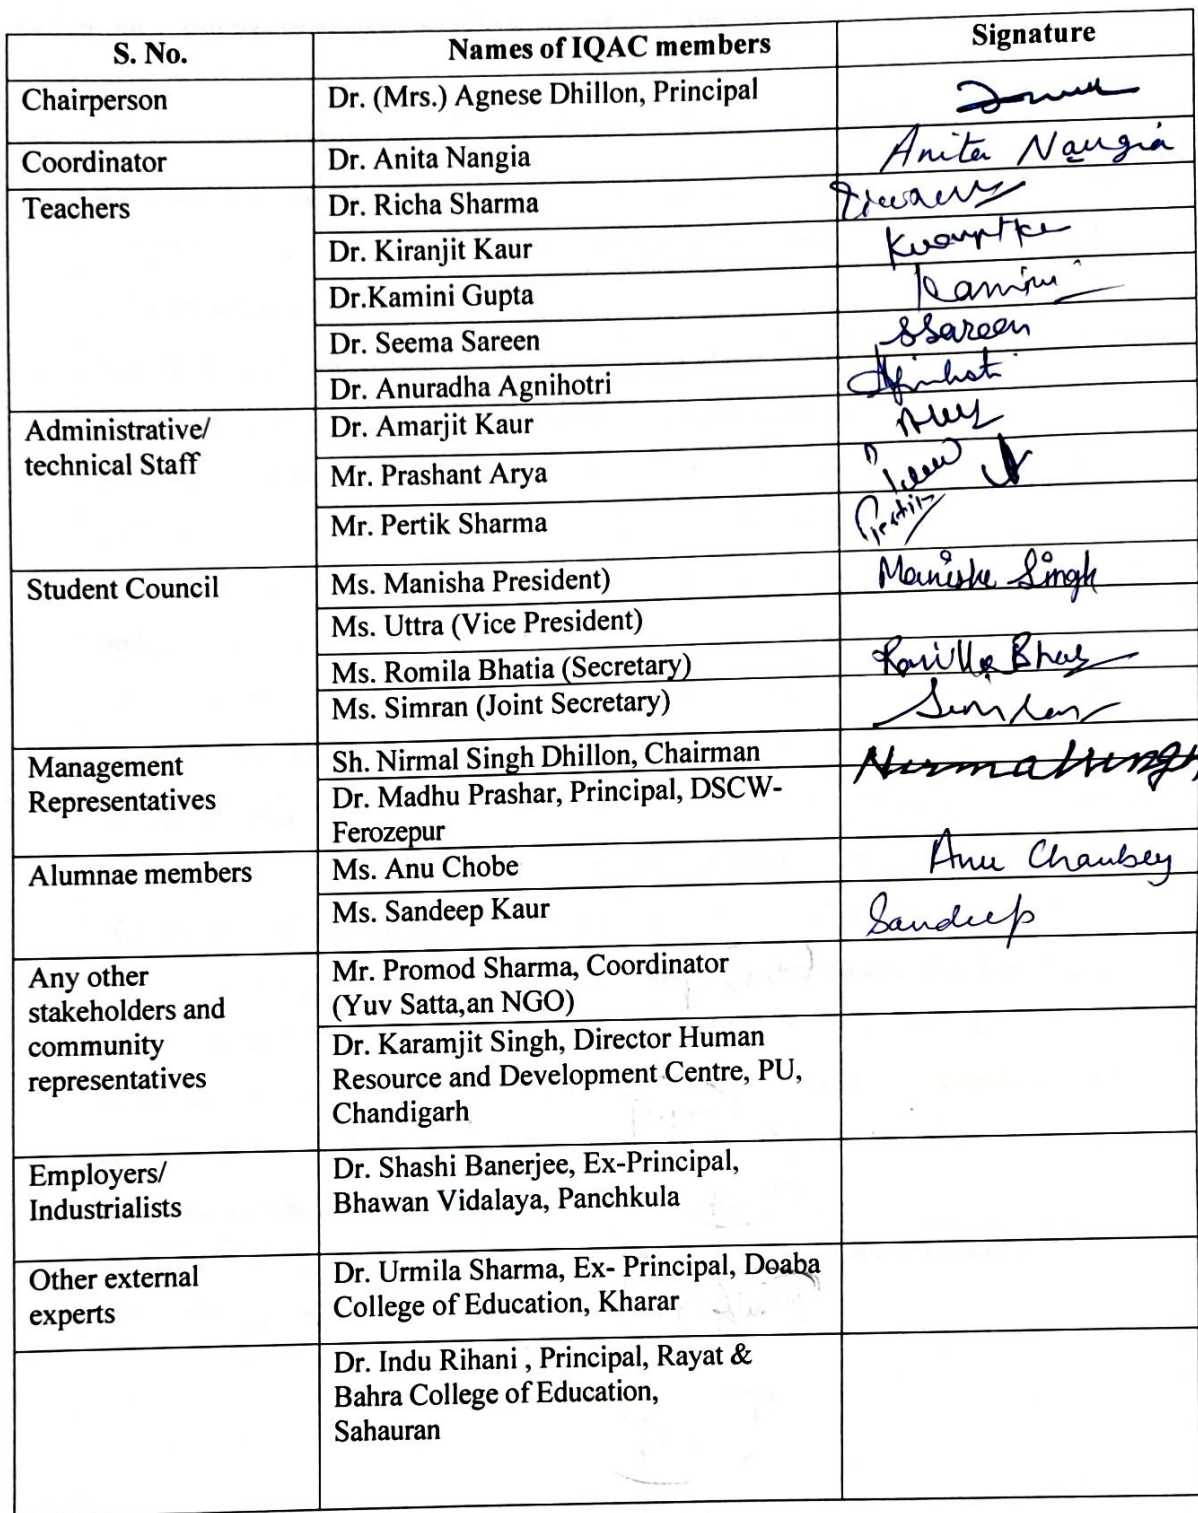 S. No. Names of IQAC members Signature
Chairperson Dr. (Mrs.) Agnese Dhillon, Principal
Coordinator Dr. Anita Nangia Anita Nangia
Teachers Dr. Richa Sharma
Dr. Kiranjit Kaur
Dr.Kamini Gupta Kamini
Dr. Seema Sareen SSareen
Dr. Anuradha Agnihotri
Administrative/
technical Staff
Dr. Amarjit Kaur
Mr. Prashant Arya
Mr. Pertik Sharma
Student Council Ms. Manisha President) Manisha Singh
Ms. Uttra (Vice President)
Ms. Romila Bhatia (Secretary)
Ms. Simran (Joint Secretary) Simran
Management
Representatives
Sh. Nirmal Singh Dhillon, Chairman Nirmal Singh
Dr. Madhu Prashar, Principal, DSCW-
Ferozepur
Alumnae members Ms. Anu Chobe Anu Chaubey
Ms. Sandeep Kaur Sandeep
Any other
stakeholders and
community
representatives
Mr. Promod Sharma, Coordinator
(Yuv Satta,an NGO)
Dr. Karamjit Singh, Director Human
Resource and Development Centre, PU,
Chandigarh
Employers/
Industrialists
Dr. Shashi Banerjee, Ex-Principal,
Bhawan Vidalaya, Panchkula
Other external
experts
Dr. Urmila Sharma, Ex- Principal, Doaba
College of Education, Kharar
Dr. Indu Rihani , Principal, Rayat &
Bahra College of Education,
Sahauran